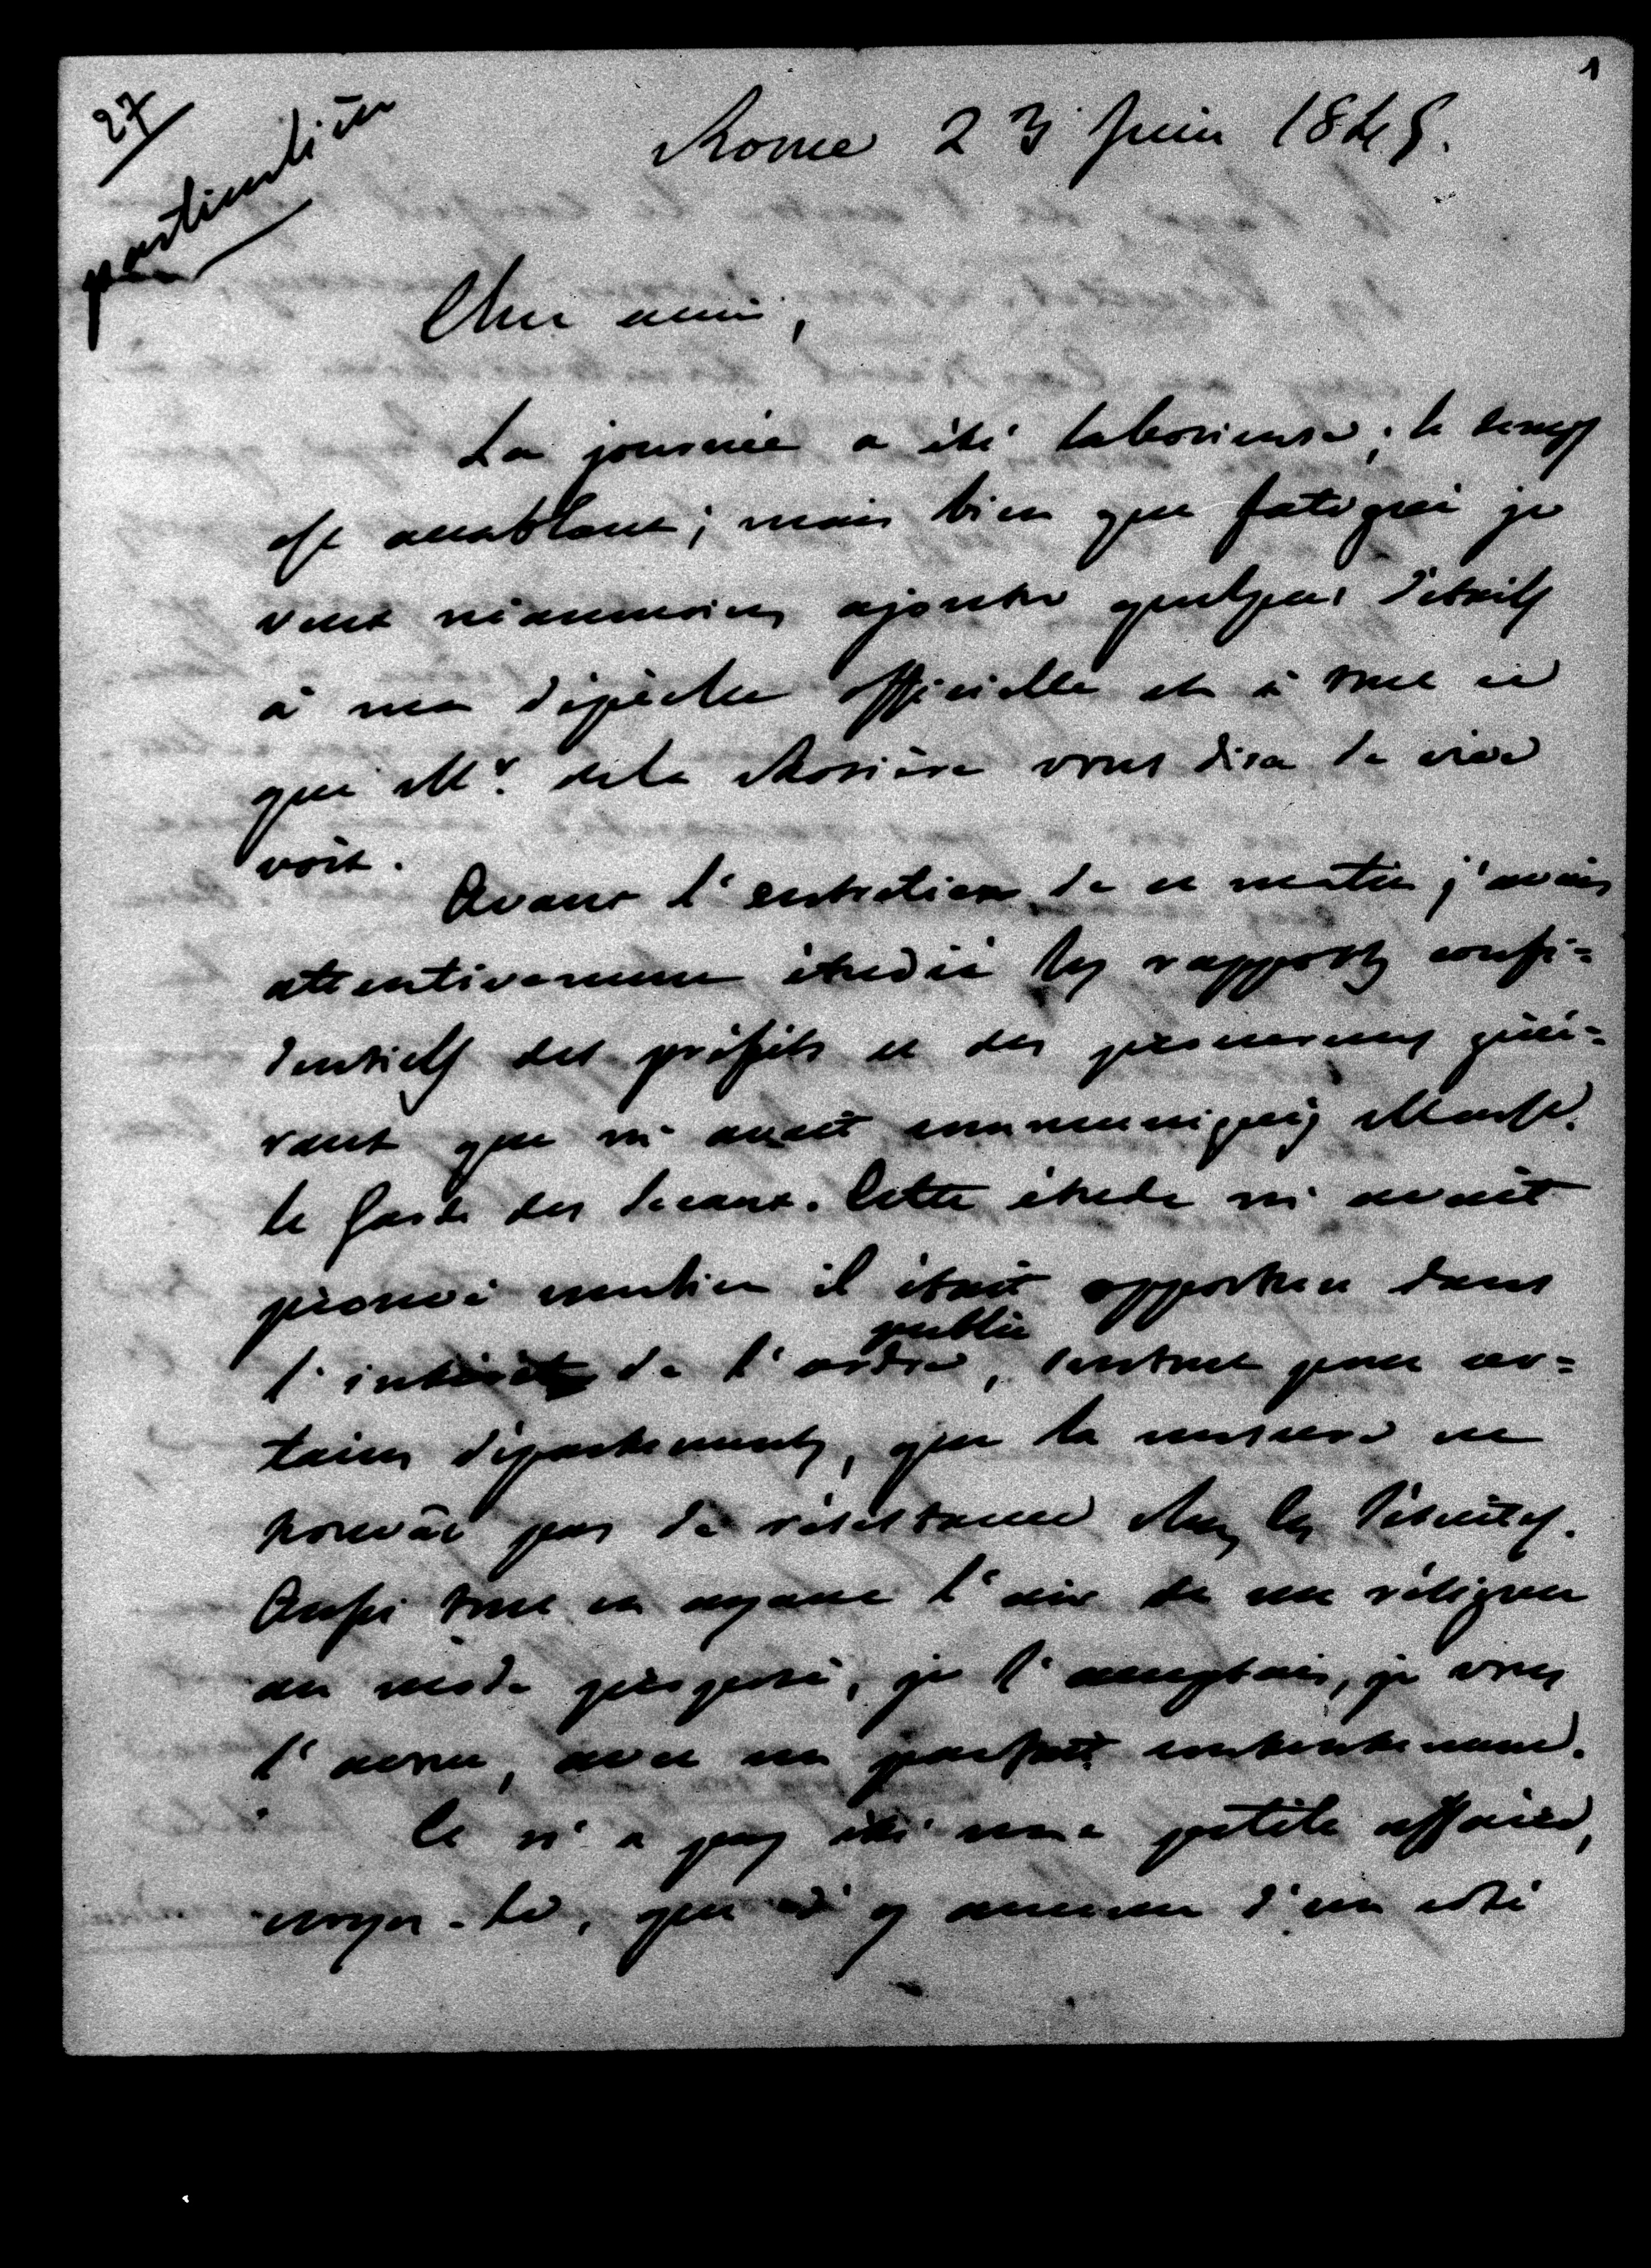 1
27
particulière
Rome 23 Juin 1845.
Cher ami,
La journée a été laborieuse; le temps
est accablant; mais bien que fatigué je
veux néanmoins ajouter quelques détails
à ma dépêche officielle et à tout ce
que Mr. de la Rosière vous dira de vive
voix.
Avant l'entretien de ce matin j'avais
attentivement étudié les rapports confi=
dentiels des préfets et des procureurs géné=
raux que m'avait communiqués Monsr.
le Garde des Sceaux. Cette étude m'avait
prouvé combien il était opportun dans
l'intérêt de l'ordre public, surtout pour cer=
tains départements, que la mesure ne
trouvât pas de résistance chez les Jésuites.
Aussi tout en ayant l'air de me résigner
au mode proposé, je l'acceptais, je vous
l'avoue, avec un parfait contentement.
Ce n'a pas été une petite affaire,
croyez-le, que d'y amener d'un côté